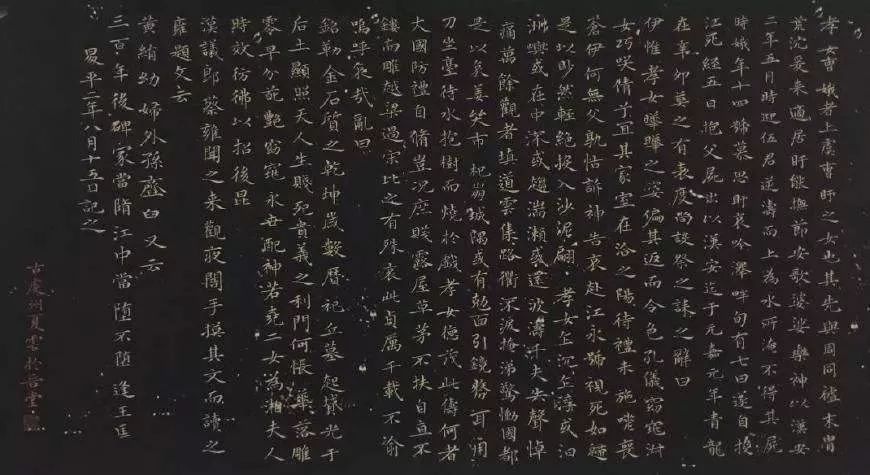 孝女曹娥者上虞曹盱之女也其先與周同祖末胄
荒沉爰来適居盱能撫節安歌婆娑樂神以漢安
二年五月時迎伍君逆濤而上為水所淹不得其屍
時娥年十四號慕思盱哀吟澤畔旬有七日遂自投
江死經五日抱父屍出以漢安迄于元嘉元年青龍
在辛卯莫之有表度尚設祭之誄之辭曰
伊惟孝女曄曄之姿偏其返而令色孔儀窈窕淑
女巧咲倩兮宜其家室在洽之陽待禮未施嗟喪
蒼伊何無父孰怙訴神告哀赴江永號視死如歸
是以眇然輕絕投入沙泥翩翩孝女乍沉乍浮或泊
洲嶼或在中流或趨湍瀨或還波濤千夫失聲悼
痛萬餘觀者填道雲集路衢泣淚掩涕驚慟國都
是以哀姜哭市杞崩城隅或有剋面引鏡剺耳用
刀坐臺待水抱樹而燒於戲孝女德茂此儔何者
大國防禮自脩豈況庶賤露屋草茅不扶自直不
鏤而雕越梁過宋比之有殊哀此貞厲千載不渝
嗚呼哀哉亂曰
銘勒金石質之乾坤歲數曆祀丘墓起墳光于
后土顯照天人生賤死貴義之利門何悵華落雕
零早分葩艷窈窕永世配神若堯二女為湘夫人
時效彷彿以招後昆
漢議郎蔡雍聞之来觀夜闇手摸其文而讀之
雍題文云
黃絹幼婦外孫虀臼又云
三百年後碑冢當墮江中當墮不墮逢王叵
昇平二年八月十五日記之
古虔州夏雲於吾堂